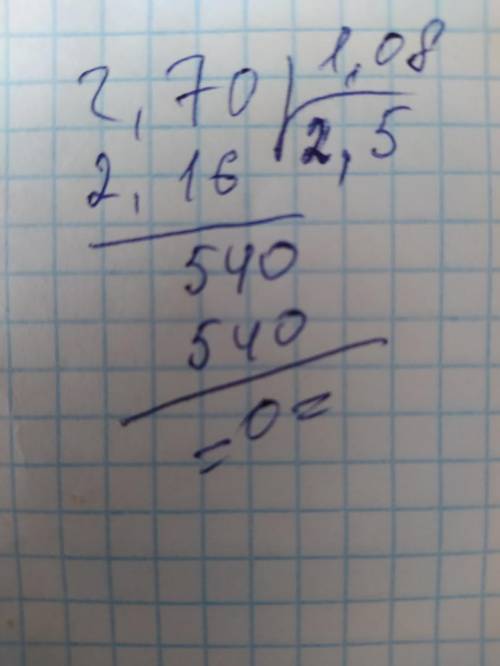 2,70 1,08
2,16 2,5
540
540
=0=